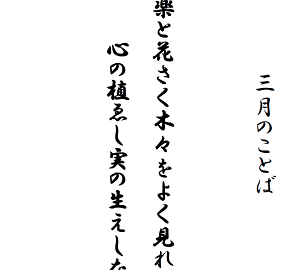 三月のことば
楽と花さく木々をよく見れ
心の植ゑし実の生えしな